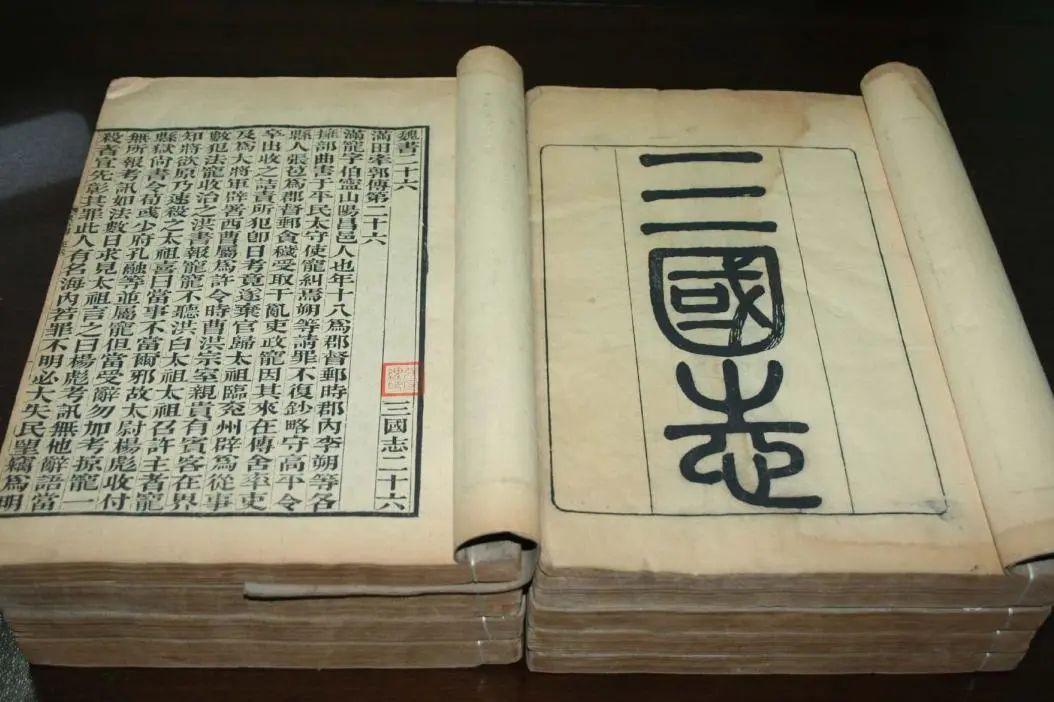 三國志
魏書二十六
三國志二十六
滿田牽郭傳第二十六
滿寵字伯寧山陽昌邑人也年十八爲郡督郵時郡內李朔等各
擁部曲害于平民太守使寵糾焉朔等請罪不復鈔略守高平令
縣人張苞爲郡督郵貪穢受取干亂吏政寵因其來在傳舍率吏
卒出收之詰責所犯卽日考竟遂棄官歸太祖臨兗州辟爲從事
及爲大將軍辟署西曹屬爲許令時曹洪宗室親貴有賓客在界
數犯法寵收治之洪書報寵寵不聽洪白太祖太祖召許主者寵
知將欲原乃速殺之太祖喜曰當事不當爾邪故太尉楊彪收付
縣獄尚書令荀彧少府孔融等並屬寵但當受辭勿加考掠寵一
無所報考訊如法數日求見太祖言之曰楊彪考訊無他辭語當
殺者宜先彰其罪此人有名海內若罪不明必大失民望竊爲明